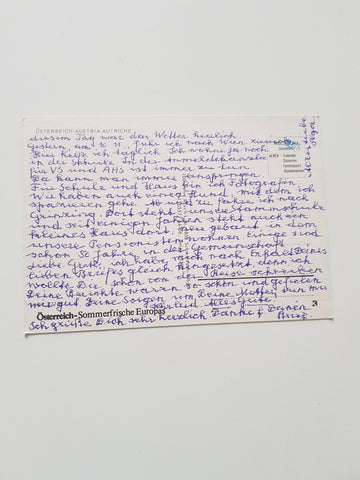 ÖSTERREICH-AUSTRIA-AUTRICHE
diesem Tag war das Wetter herrlich.
Gestern, am 10. 11. fuhr ich nach Wien zurück.
Hier helfe ich täglich. Ich wohne ja noch
in der Schule. In der Anmeldekanzlei
für VS und AHS ist immer zu tun.
Da kann man immer einspringen.
Für Schule und Haus bin ich Fotografin.
Wir haben auch einen Hund, mit dem ich
spazieren gehe. Ab und zu fahre ich nach
Grinzing. Dort steht unsere Stammschule
und seit wenigen Jahren steht auch ein
kleines Haus dort, neu gebaut, in dem
unsere Pensionistinnen wohnen. Einige sind
schon 50 Jahre in der Gemeinschaft
Liebe ich habe mich nach Erhalt Deines
lieben Briefes gleich hingesetzt, denn ich
wollte Dir schon von der Reise schreiben
Deine Berichte waren so schön und gefielen
mir gut. Deine Sorgen um Deine Mutter tun mir
leid. Alles Gute.
Österreich-Sommerfrische Europas
3
Ich grüße Dich sehr herzlich Danke f. Deinen
Brief.
Alles Liebe
ALPEN
- Kalender